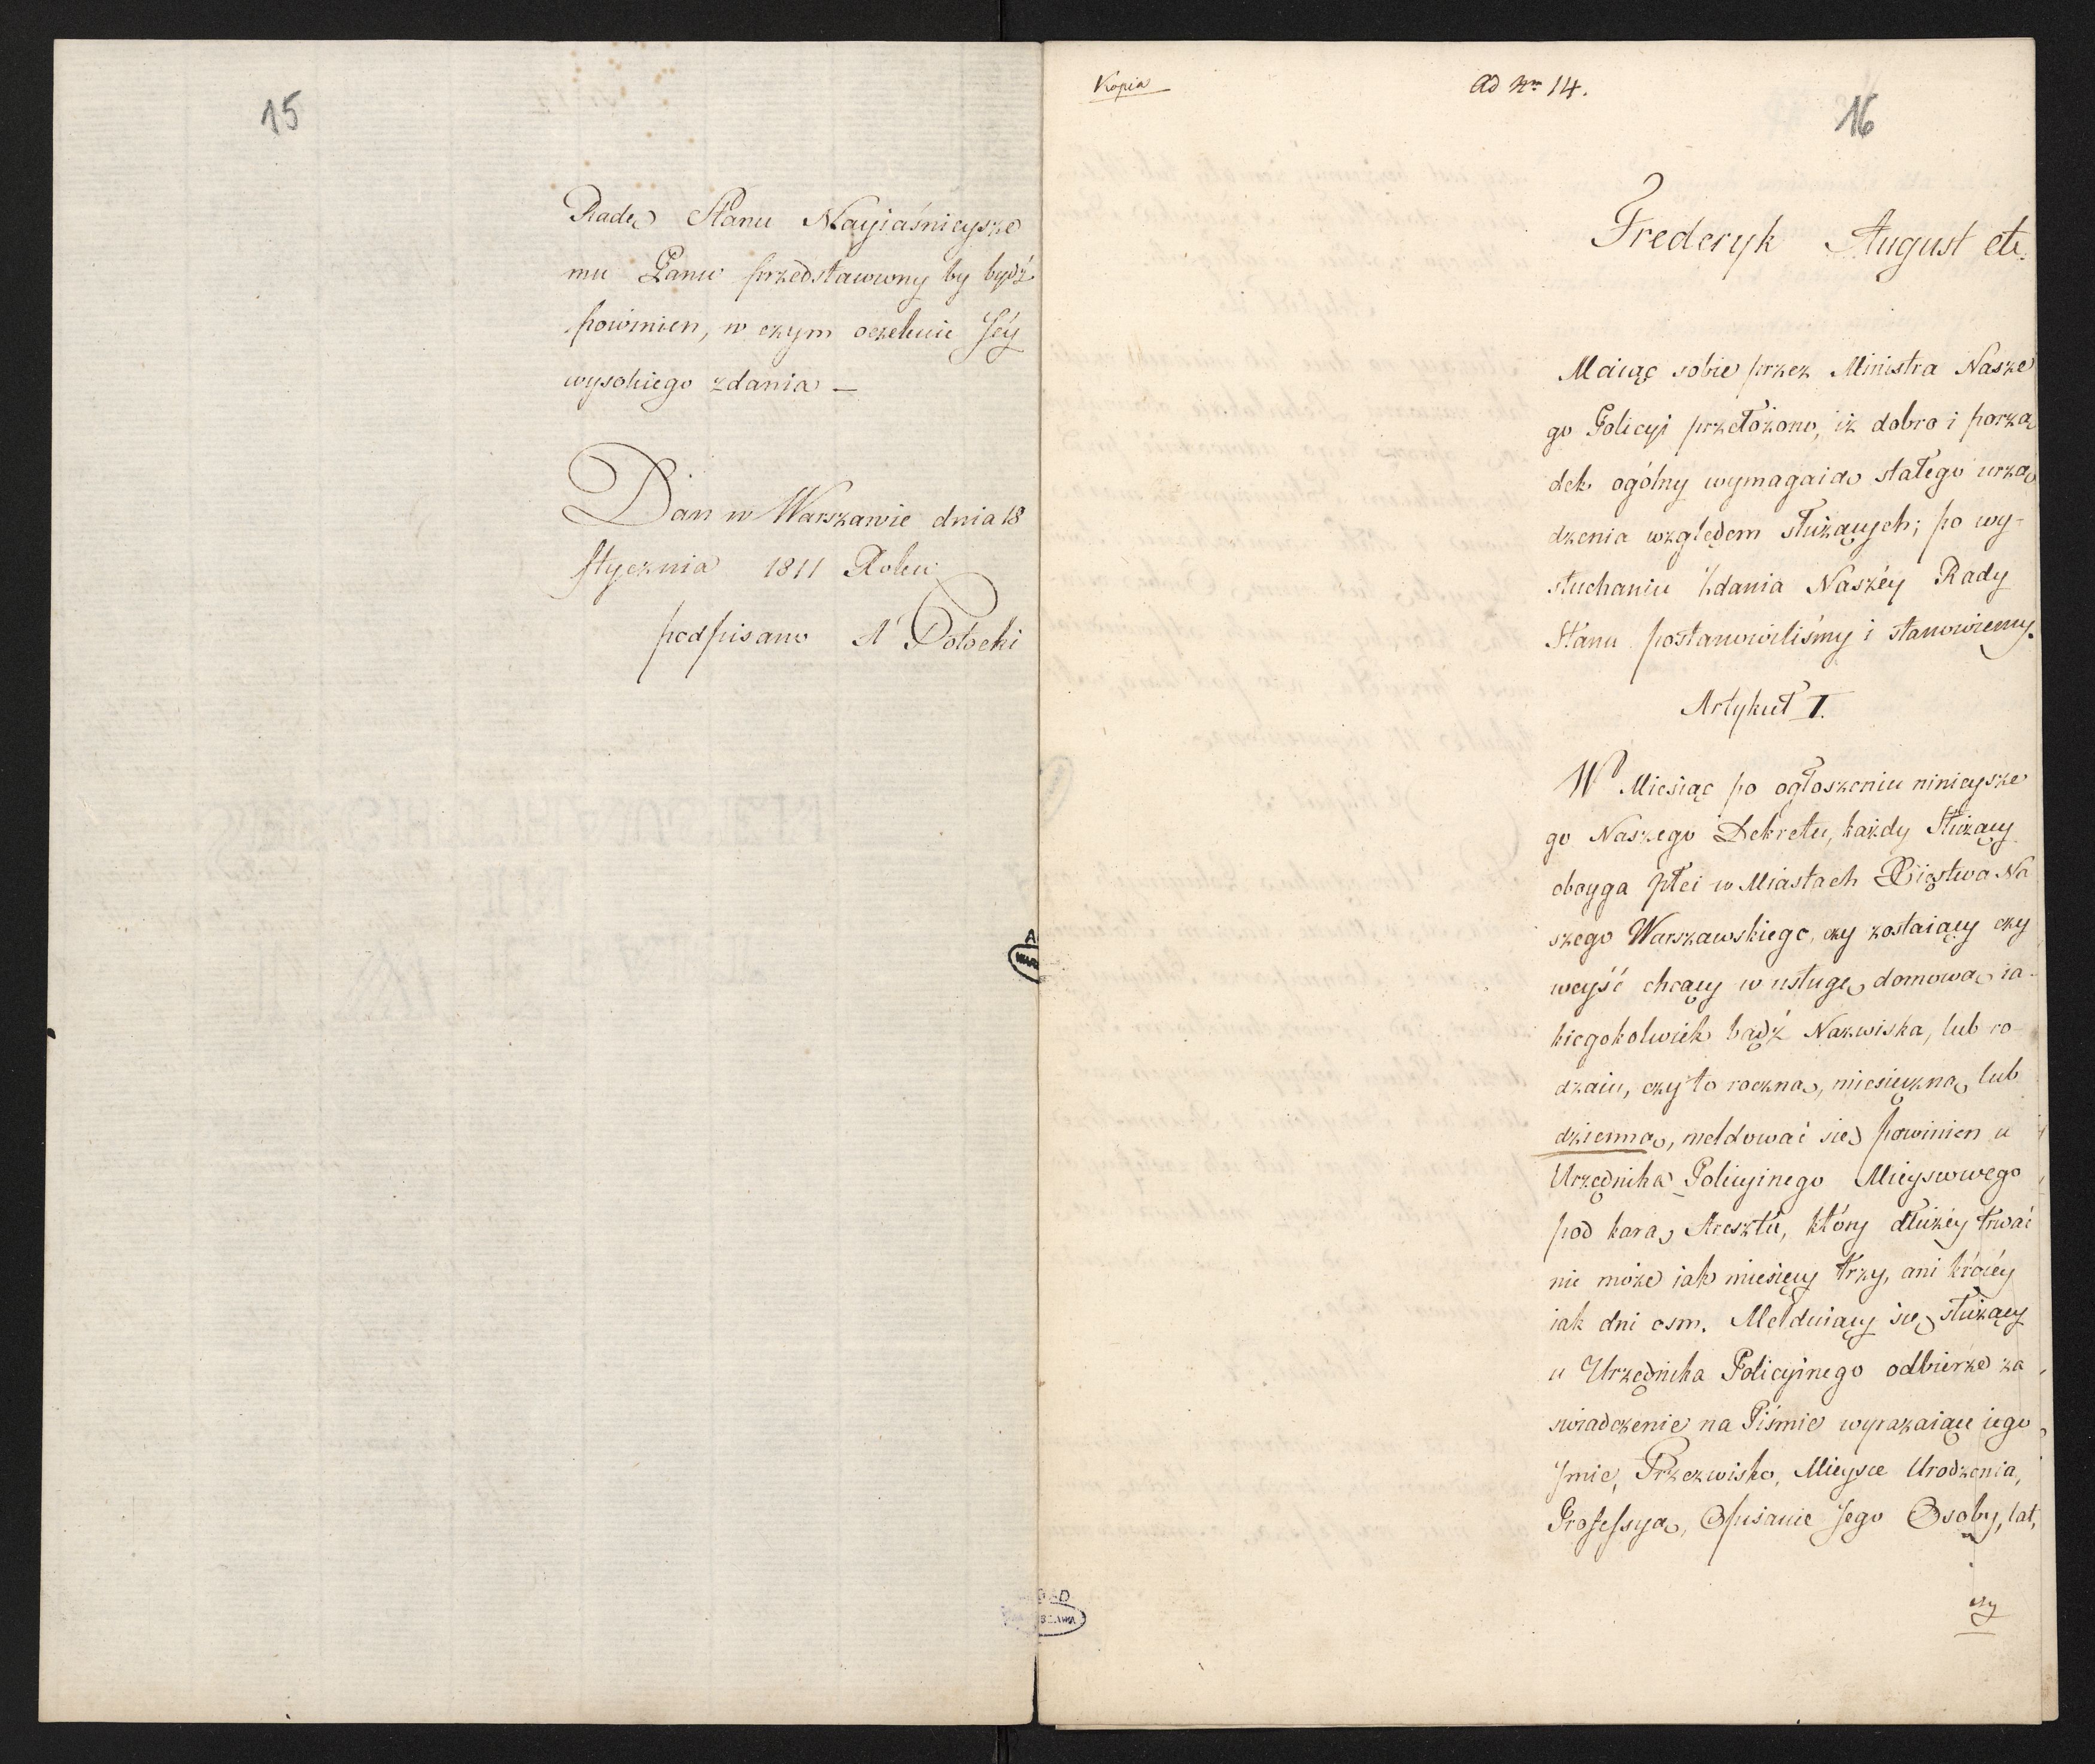 15
Radę Stanu Nayiaśnieysze
mu Panu przedstawiony by bydź
powinien, w czym oczekuie Jéy
wysokiego zdania —
Dan w Warszawie dnia 18
Stycznia 1811 Roku
podpisano A Potocki
Kopia
ad Nm 14.
16
Frederyk August etc.
Maiąc sobie przez Ministra Nasze
go Policyi przełożono, iż dobro i porzą
dek ogólny wymagaią stałego urzą
dzenia względem służących; po wy-
słuchaniu Zdania Naszéy Rady
Stanu postanowiliśmy i stanowiemy.
Artykuł I.
W Miesiąc po ogłoszeniu ninieysze
go Naszego Dekretu, każdy Służący
oboyga płci w Miastach Xięstwa Na
szego Warszawskiego, czy zostaiący czy
weyść chcący w usługę domową ia-
kiegokolwiek bądź Nazwiska, lub ro-
dzaiu, czy to roczną, miesięczną lub
dzienną, meldować się powinien u
Urzędnika Policyinego Mieyscowego
pod karą Aresztu, który dłużéy trwać
nie może iak miesięcy trzy, ani krócéy
iak dni osm. Melduiący się służący
u Urzędnika Policyinego odbierze za
świadczenie na Piśmie wyrażaiące iego
Jmie, Przezwisko, Mieysce Urodzenia,
Professyą, Opisanie Jego Osoby, lat,
czy